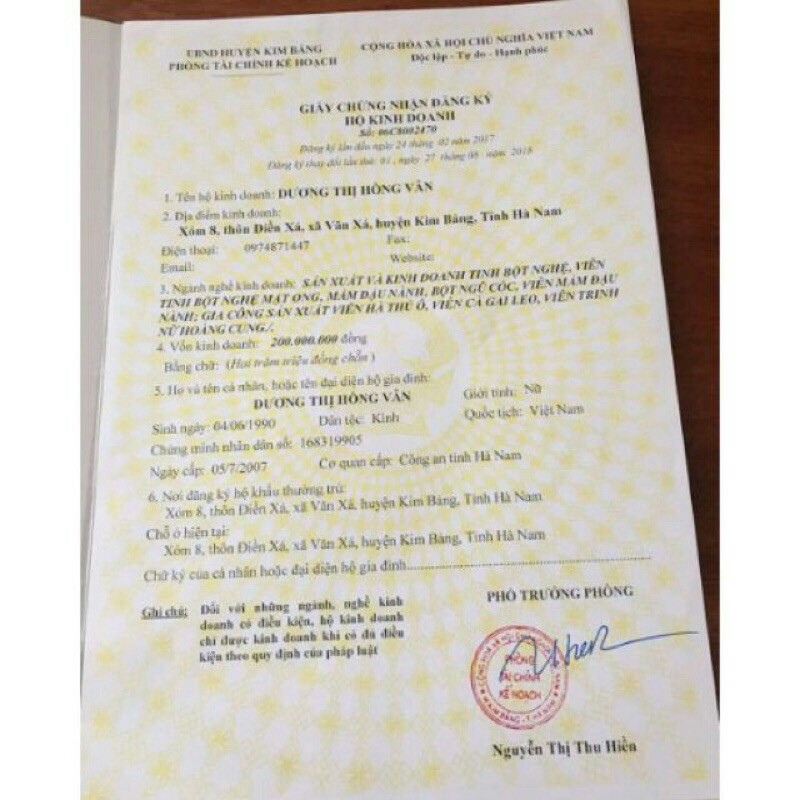 UBND HUYỆN KIM BẢNG
PHÒNG TÀI CHÍNH KẾ HOẠCH
CỘNG HÒA XÃ HỘI CHỦ NGHĨA VIỆT NAM
Độc lập - Tự do - Hạnh phúc
GIẤY CHỨNG NHẬN ĐĂNG KÝ
HỘ KINH DOANH
Số: 06C8002470
Đăng ký lần đầu ngày 24 tháng 02 năm 2017
Đăng ký thay đổi lần thứ: 01, ngày 27 tháng 08 năm 2018
1. Tên hộ kinh doanh: DƯƠNG THỊ HỒNG VÂN
2. Địa điểm kinh doanh:
Xóm 8, thôn Điền Xá, xã Văn Xá, huyện Kim Bảng, Tỉnh Hà Nam
Điện thoại: 0974871447 Fax:
Email: Website:
3. Ngành nghề kinh doanh: SẢN XUẤT VÀ KINH DOANH TINH BỘT NGHỆ, VIÊN
TINH BỘT NGHỆ MẬT ONG, MẦM ĐẬU NÀNH, BỘT NGŨ CỐC, VIÊN MẦM ĐẬU
NÀNH; GIA CÔNG SẢN XUẤT VIÊN HÀ THỦ Ô, VIÊN CÀ GAI LEO, VIÊN TRINH
NỮ HOÀNG CUNG./.
4. Vốn kinh doanh: 200.000.000 đồng
Bằng chữ: (Hai trăm triệu đồng chẵn )
5. Họ và tên cá nhân, hoặc tên đại diện hộ gia đình:
DƯƠNG THỊ HỒNG VÂN Giới tính: Nữ
Sinh ngày: 04/06/1990 Dân tộc: Kinh Quốc tịch: Việt Nam
Chứng minh nhân dân số: 168319905
Ngày cấp: 05/7/2007 Cơ quan cấp: Công an tỉnh Hà Nam
6. Nơi đăng ký hộ khẩu thường trú:
Xóm 8, thôn Điền Xá, xã Văn Xá, huyện Kim Bảng, Tỉnh Hà Nam
Chỗ ở hiện tại:
Xóm 8, thôn Điền Xá, xã Văn Xá, huyện Kim Bảng, Tỉnh Hà Nam
Chữ ký của cá nhân hoặc đại diện hộ gia đình
Ghi chú: Đối với những ngành, nghề kinh
doanh có điều kiện, hộ kinh doanh
chỉ được kinh doanh khi có đủ điều
kiện theo quy định của pháp luật
PHÓ TRƯỞNG PHÒNG
PHÒNG
TÀI CHÍNH
KẾ HOẠCH
Nguyễn Thị Thu Hiền